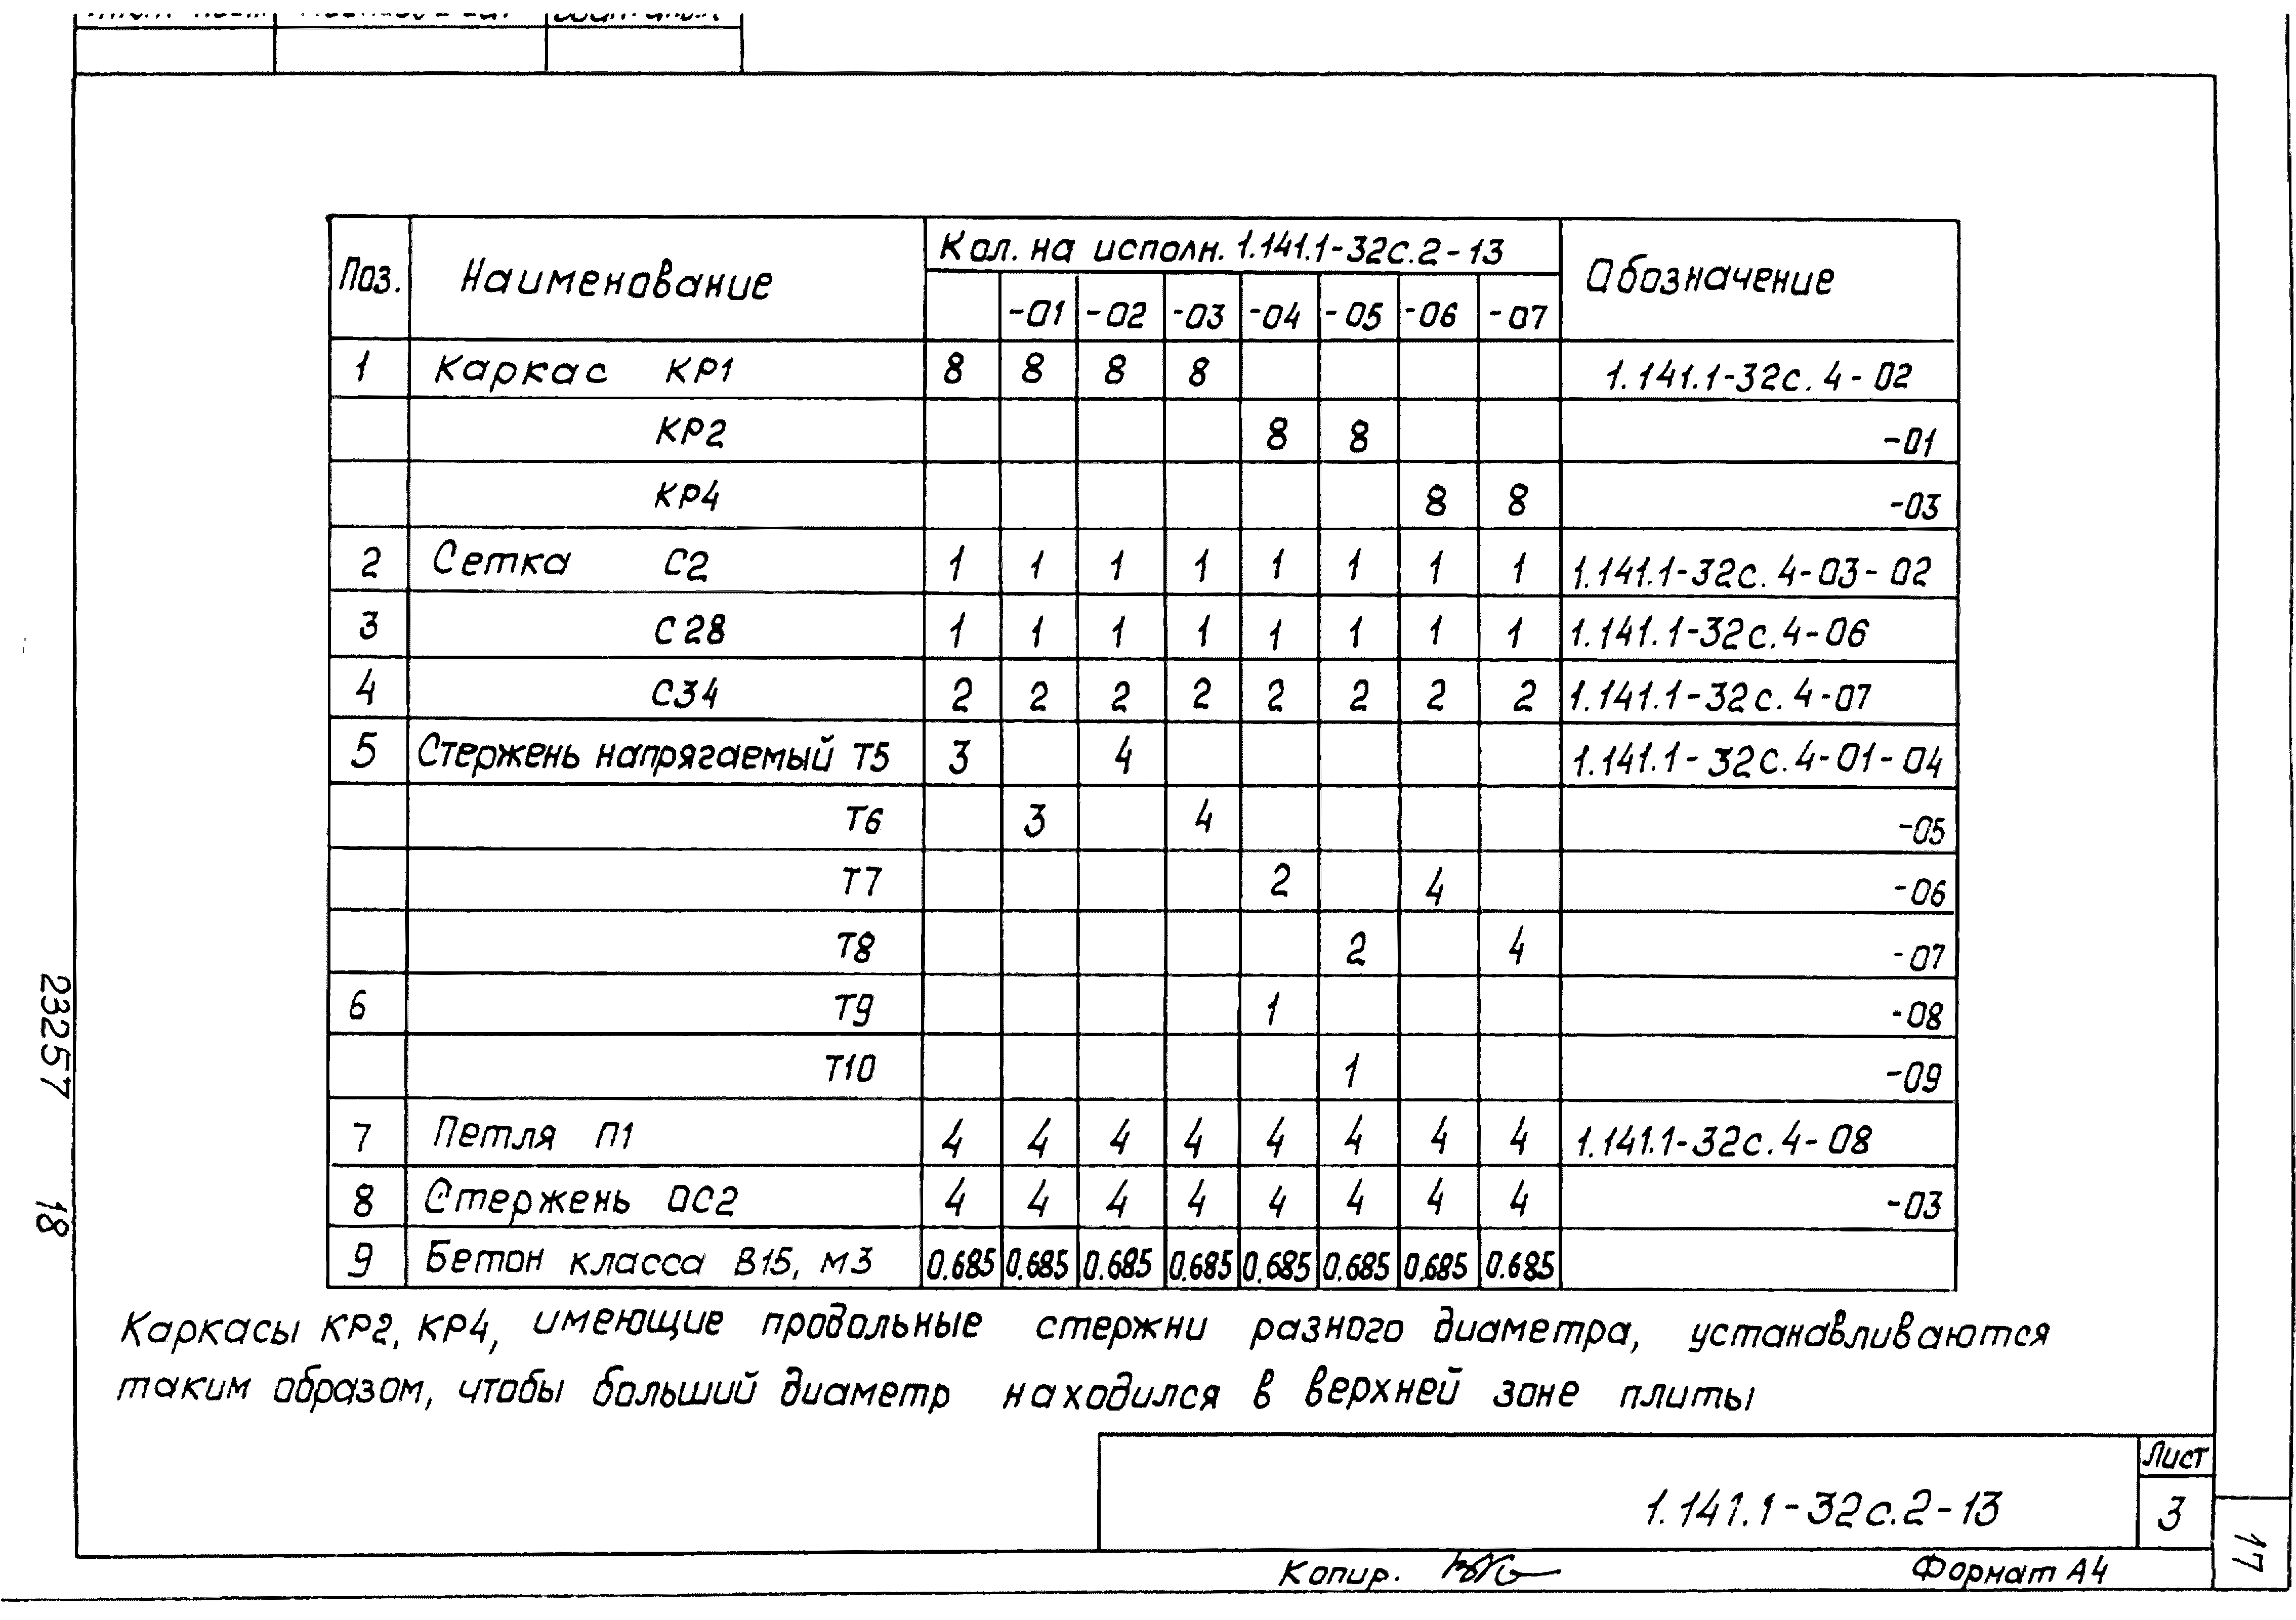 Поз. Наименование Кол. на исполн. 1.141.1-32с.2-13 Обозначение
-01 -02 -03 -04 -05 -06 -07
1 Каркас КР1 8 8 8 8 1.141.1-32с.4-02
КР2 8 8 -01
КР4 8 8 -03
2 Сетка С2 1 1 1 1 1 1 1 1 1.141.1-32с.4-03-02
3 С28 1 1 1 1 1 1 1 1 1.141.1-32с.4-06
4 С34 2 2 2 2 2 2 2 2 1.141.1-32с.4-07
5 Стержень напрягаемый Т5 3 4 1.141.1-32с.4-01-04
Т6 3 4 -05
Т7 2 4 -06
Т8 2 4 -07
6 Т9 1 -08
Т10 1 -09
7 Петля П1 4 4 4 4 4 4 4 4 1.141.1-32с.4-08
8 Стержень ОС2 4 4 4 4 4 4 4 4 -03
9 Бетон класса В15, м3 0.685 0.685 0.685 0.685 0.685 0.685 0.685 0.685
Каркасы КР2, КР4, имеющие продольные стержни разного диаметра, устанавливаются
таким образом, чтобы больший диаметр находился в верхней зоне плиты
1.141.1-32с.2-13
Лист
3
Копир.
Формат А4
17
23257 18